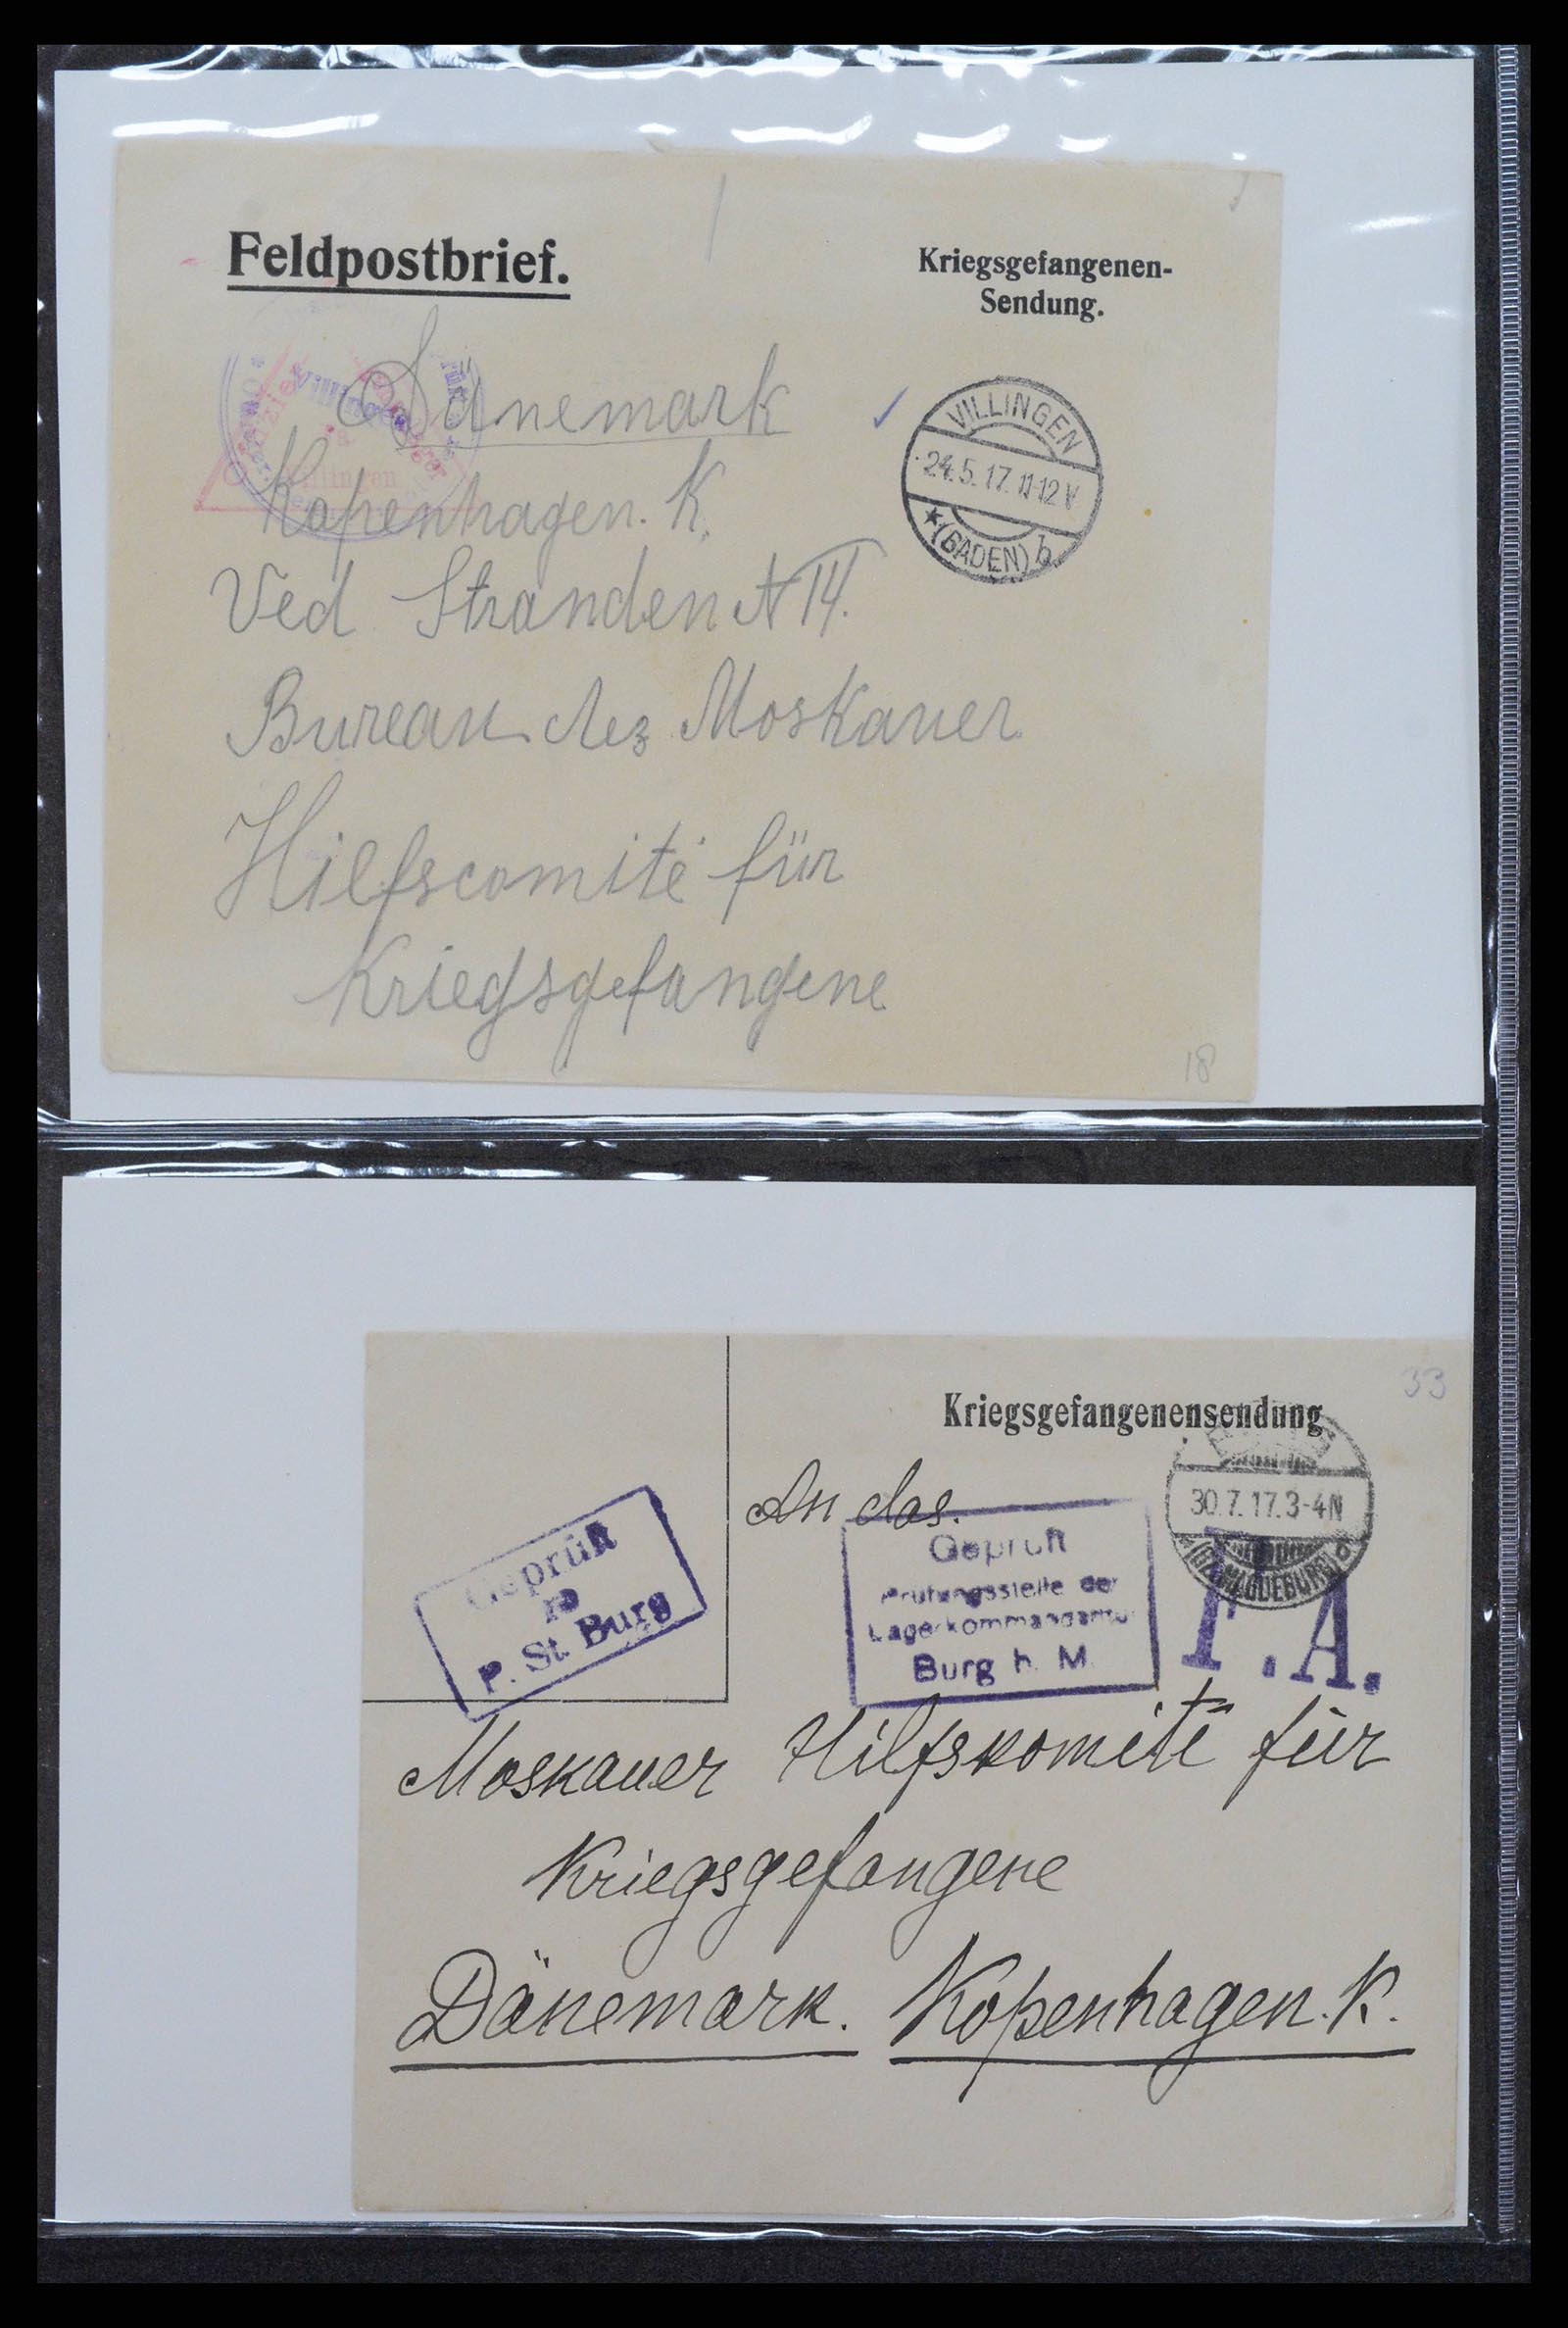 Feldpostbrief.
Kriegsgefangenen-
Sendung.
Dänemark
Kopenhagen. K.
Ved Stranden N 14.
Bureau des Moskauer
Hilfscomité für
Kriegsgefangene
VILLINGEN
24.5.17.11-12 V
* (BADEN) b
18
33
Kriegsgefangenensendung
An das.
30.7.17.3-4N
Geprüft
P. St. Burg
Geprüft
Prüfungsstelle der
Lagerkommandantur
Burg b. M.
F.A.
Moskauer Hilfskomité für
Kriegsgefangene
Dänemark. Kopenhagen. K.